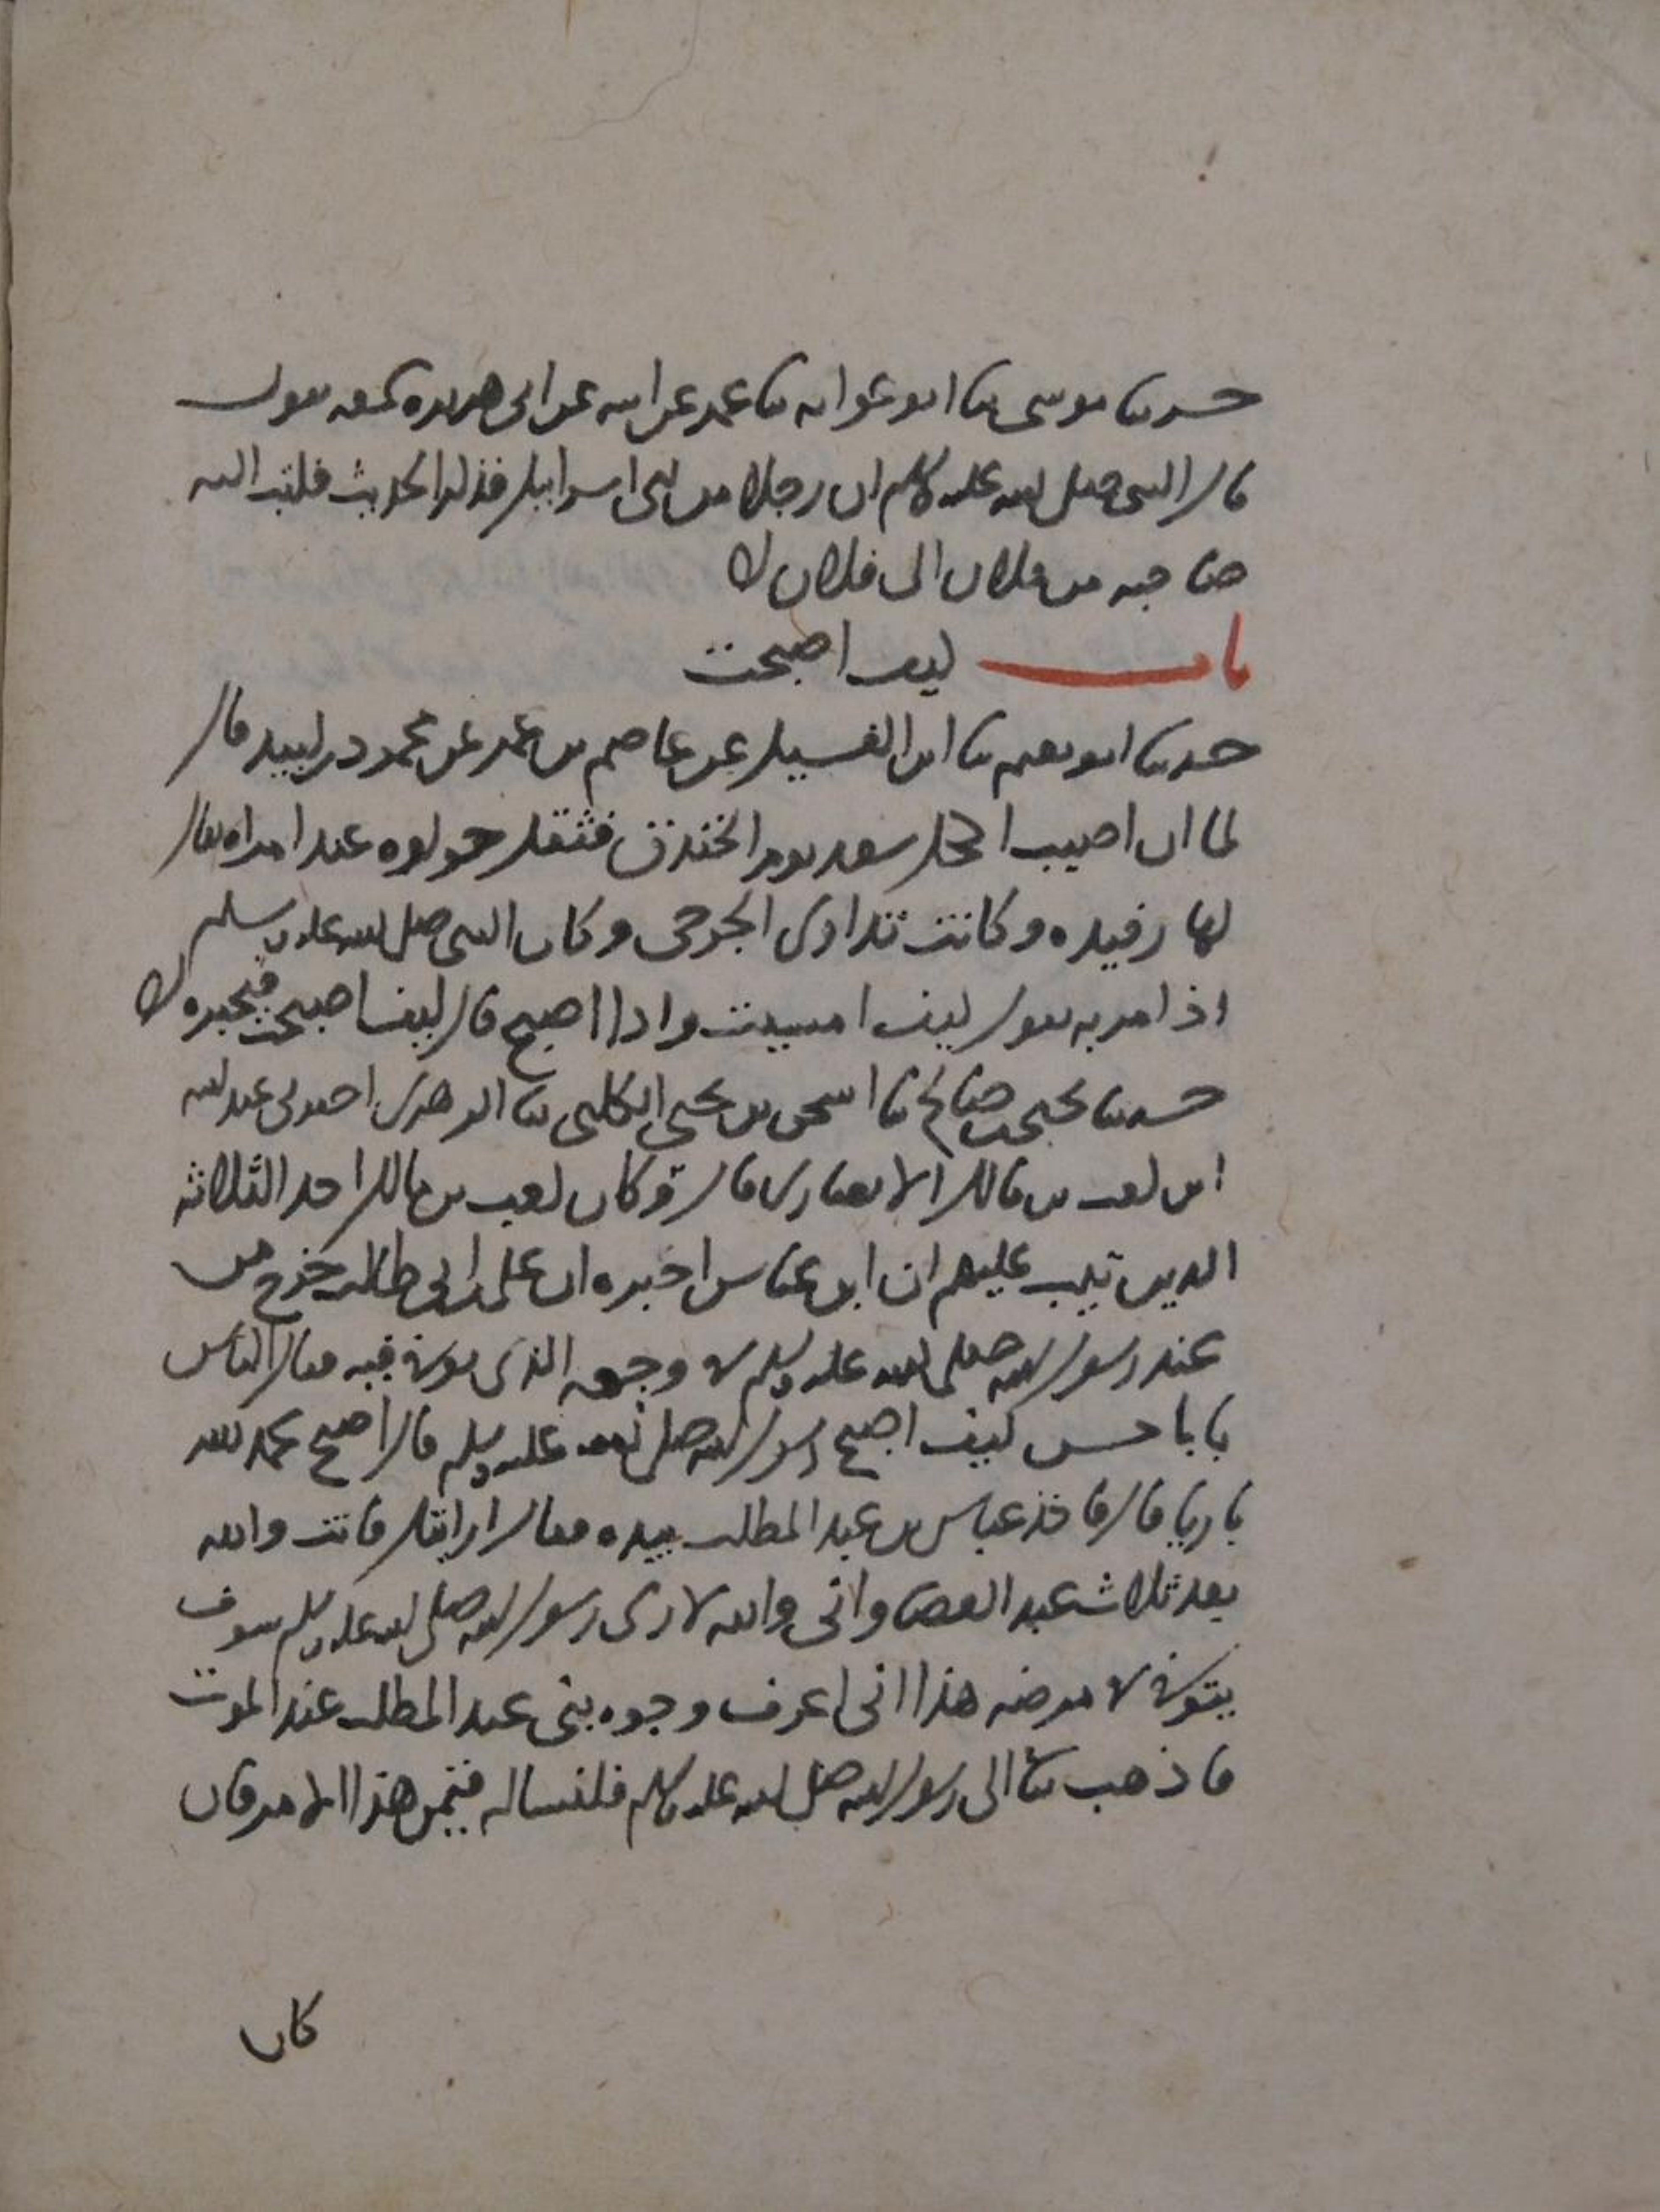 حدثنا موسى ثنا ابو عوانه ثنا عمر عن ابيه عن ابى هريره سمعه يقول
قال النبى صلى الله عليه وسلم ان رجلا من بنى اسرايل فذكر الحديث فكتب اليه
صاحبه من فلان الى فلان
باب كيف اصبحت
حدثنا ابو نعيم ثنا ابن الغسيل عن عاصم بن عمر عن محمود بن لبيد قال
لما ان اصيب اكحل سعد يوم الخندق فثقل حولوه عند امراه يقال
لها رفيده وكانت تداوى الجرحى وكان النبى صلى الله عليه وسلم
اذا مر به يقول كيف امسيت واذا اصبح قال كيف اصبحت فيخبره
حدثنا يحيى بن صالح ثنا اسحق بن يحيى الكلبى ثنا الزهرى اخبرنى عبد الله
ابن كعب بن مالك الانصارى قال وكان كعب بن مالك احد الثلاثه
الذين تيب عليهم ان ابن عباس اخبره ان على بن ابى طالب خرج من
عند رسول الله صلى الله عليه وسلم فى وجعه الذى توفى فيه فقال الناس
يابا حسن كيف اصبح رسول الله صلى الله عليه وسلم قال اصبح بحمد الله
باريا قال فاخذ عباس بن عبد المطلب بيده فقال ارايتك فانت والله
بعد ثلاث عبد العصا وانى والله لارى رسول الله صلى الله عليه وسلم سوف
يتوفى فى مرضه هذا انى اعرف وجوه بنى عبد المطلب عند الموت
فاذهب بنا الى رسول الله صلى الله عليه وسلم فلنساله فيمن هذا الامر فان
كان